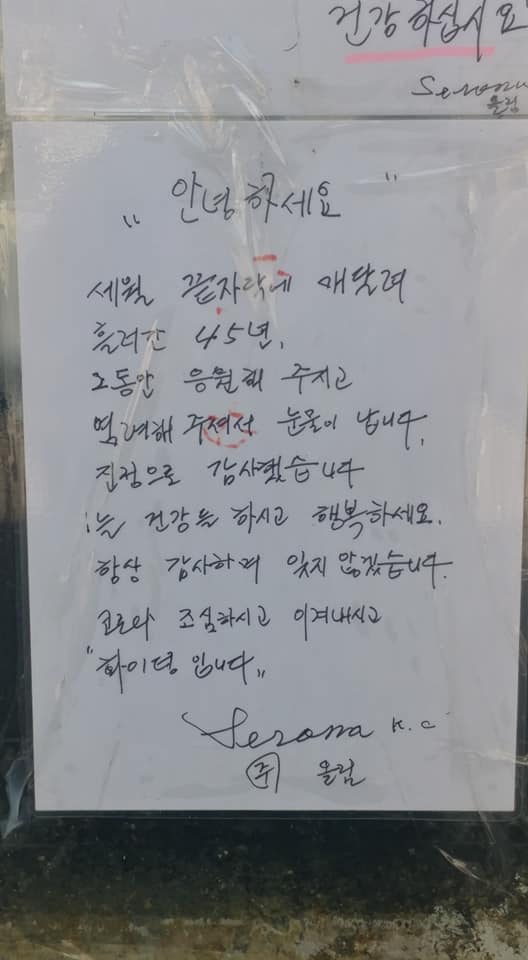 건강하십시요
Serona
올림
" 안녕하세요 "
세월 끝자락에 매달려
흘러간 45년.
그동안 응원해 주지고
격려해 주져서 눈물이 납니다.
진정으로 감사했습니다
늘 건강들 하시고 행복하세요.
항상 감사하며 잊지 않겠습니다.
코로나 조심하시고 이겨내시고
"화이팅 입니다"
Serona K. C
㈜ 올림